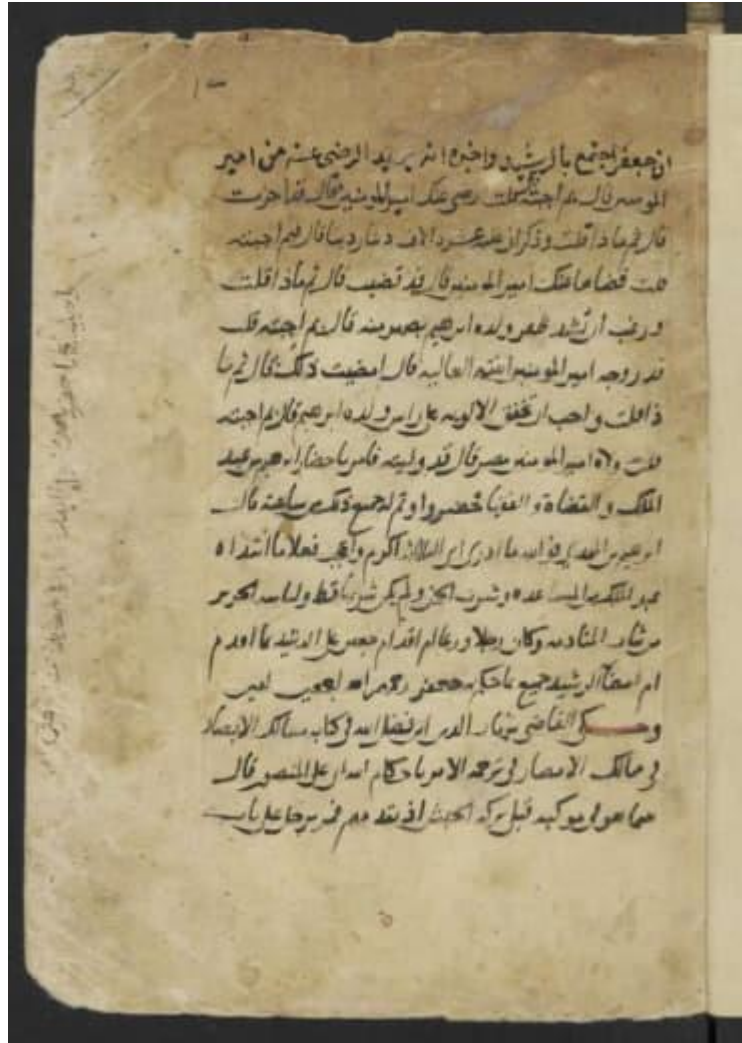 ان جعفر اجتمع بالرشيد واخبره انه يريد الرضى عنه من امير
المومنين قال بم اجبته قلت رضى عنك امير المومنين قال قد اجزت
قال ثم ماذا قلت وذكر ان عليه عشره الاف دينار دينا قال فبم اجبته
قلت قضاها عنك امير المومنين قال قد قضيت قال ثم ماذا قلت
ورغب ان يشد ظهر ولده ابرهيم بصهر منه قال بم اجبته قلت
قد زوجه امير المومنين ابنته العاليه قال امضيت ذلك قال ثم ما
ذا قلت واحب ان تخفق الالويه على راس ولده ابرهيم قال بم اجبته
قلت ولاه امير المومنين مصر قال قد وليته فامر باحضار ابرهيم بن عبد
الملك والقضاة والفقها فحضروا وتم له جميع ذلك من ساعته قال
ابرهيم بن المهدي فو الله ما ادرى اي الثلاثة اكرم واعجب فعلا ما ابتداه
عبد الملك من المساعده وشرب الخمر ولم يكن شربها قط ولباسه الحرير
من ثياب المنادمه وكان رجلا ورعا ام اقدام جعفر على الرشيد بما اقدم
ام امضا الرشيد جميع ما حكم به جعفر
وحكى القاضي شهاب الدين ابن فضل الله في كتاب مسالك الابصار
في ممالك الامصار في ترجمة الامر باحكام الله ابي على المنصور قال
بينما هو في موكبه قبل بركه الحبش اذ تقدمهم فمر برجل على باب